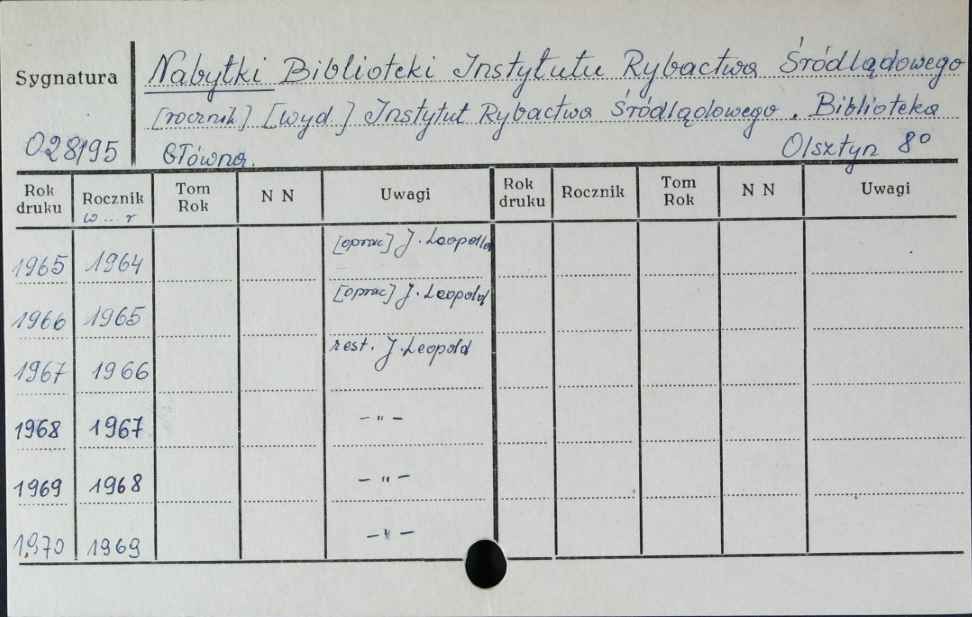 Sygnatura
Nabytki Biblioteki Instytutu Rybactwa Śródlądowego
[rocznik] [wyd] Instytut Rybactwa Śródlądowego. Biblioteka
028195 Główna. Olsztyn 8°
Rok druku Rocznik w...r Tom Rok N N Uwagi Rok druku Rocznik Tom Rok N N Uwagi
1965 1964 [oprac] J. Leopold
1966 1965 [oprac] J. Leopold
1967 1966 zest. J. Leopold
1968 1967 – " –
1969 1968 – " –
1970 1969 – " –